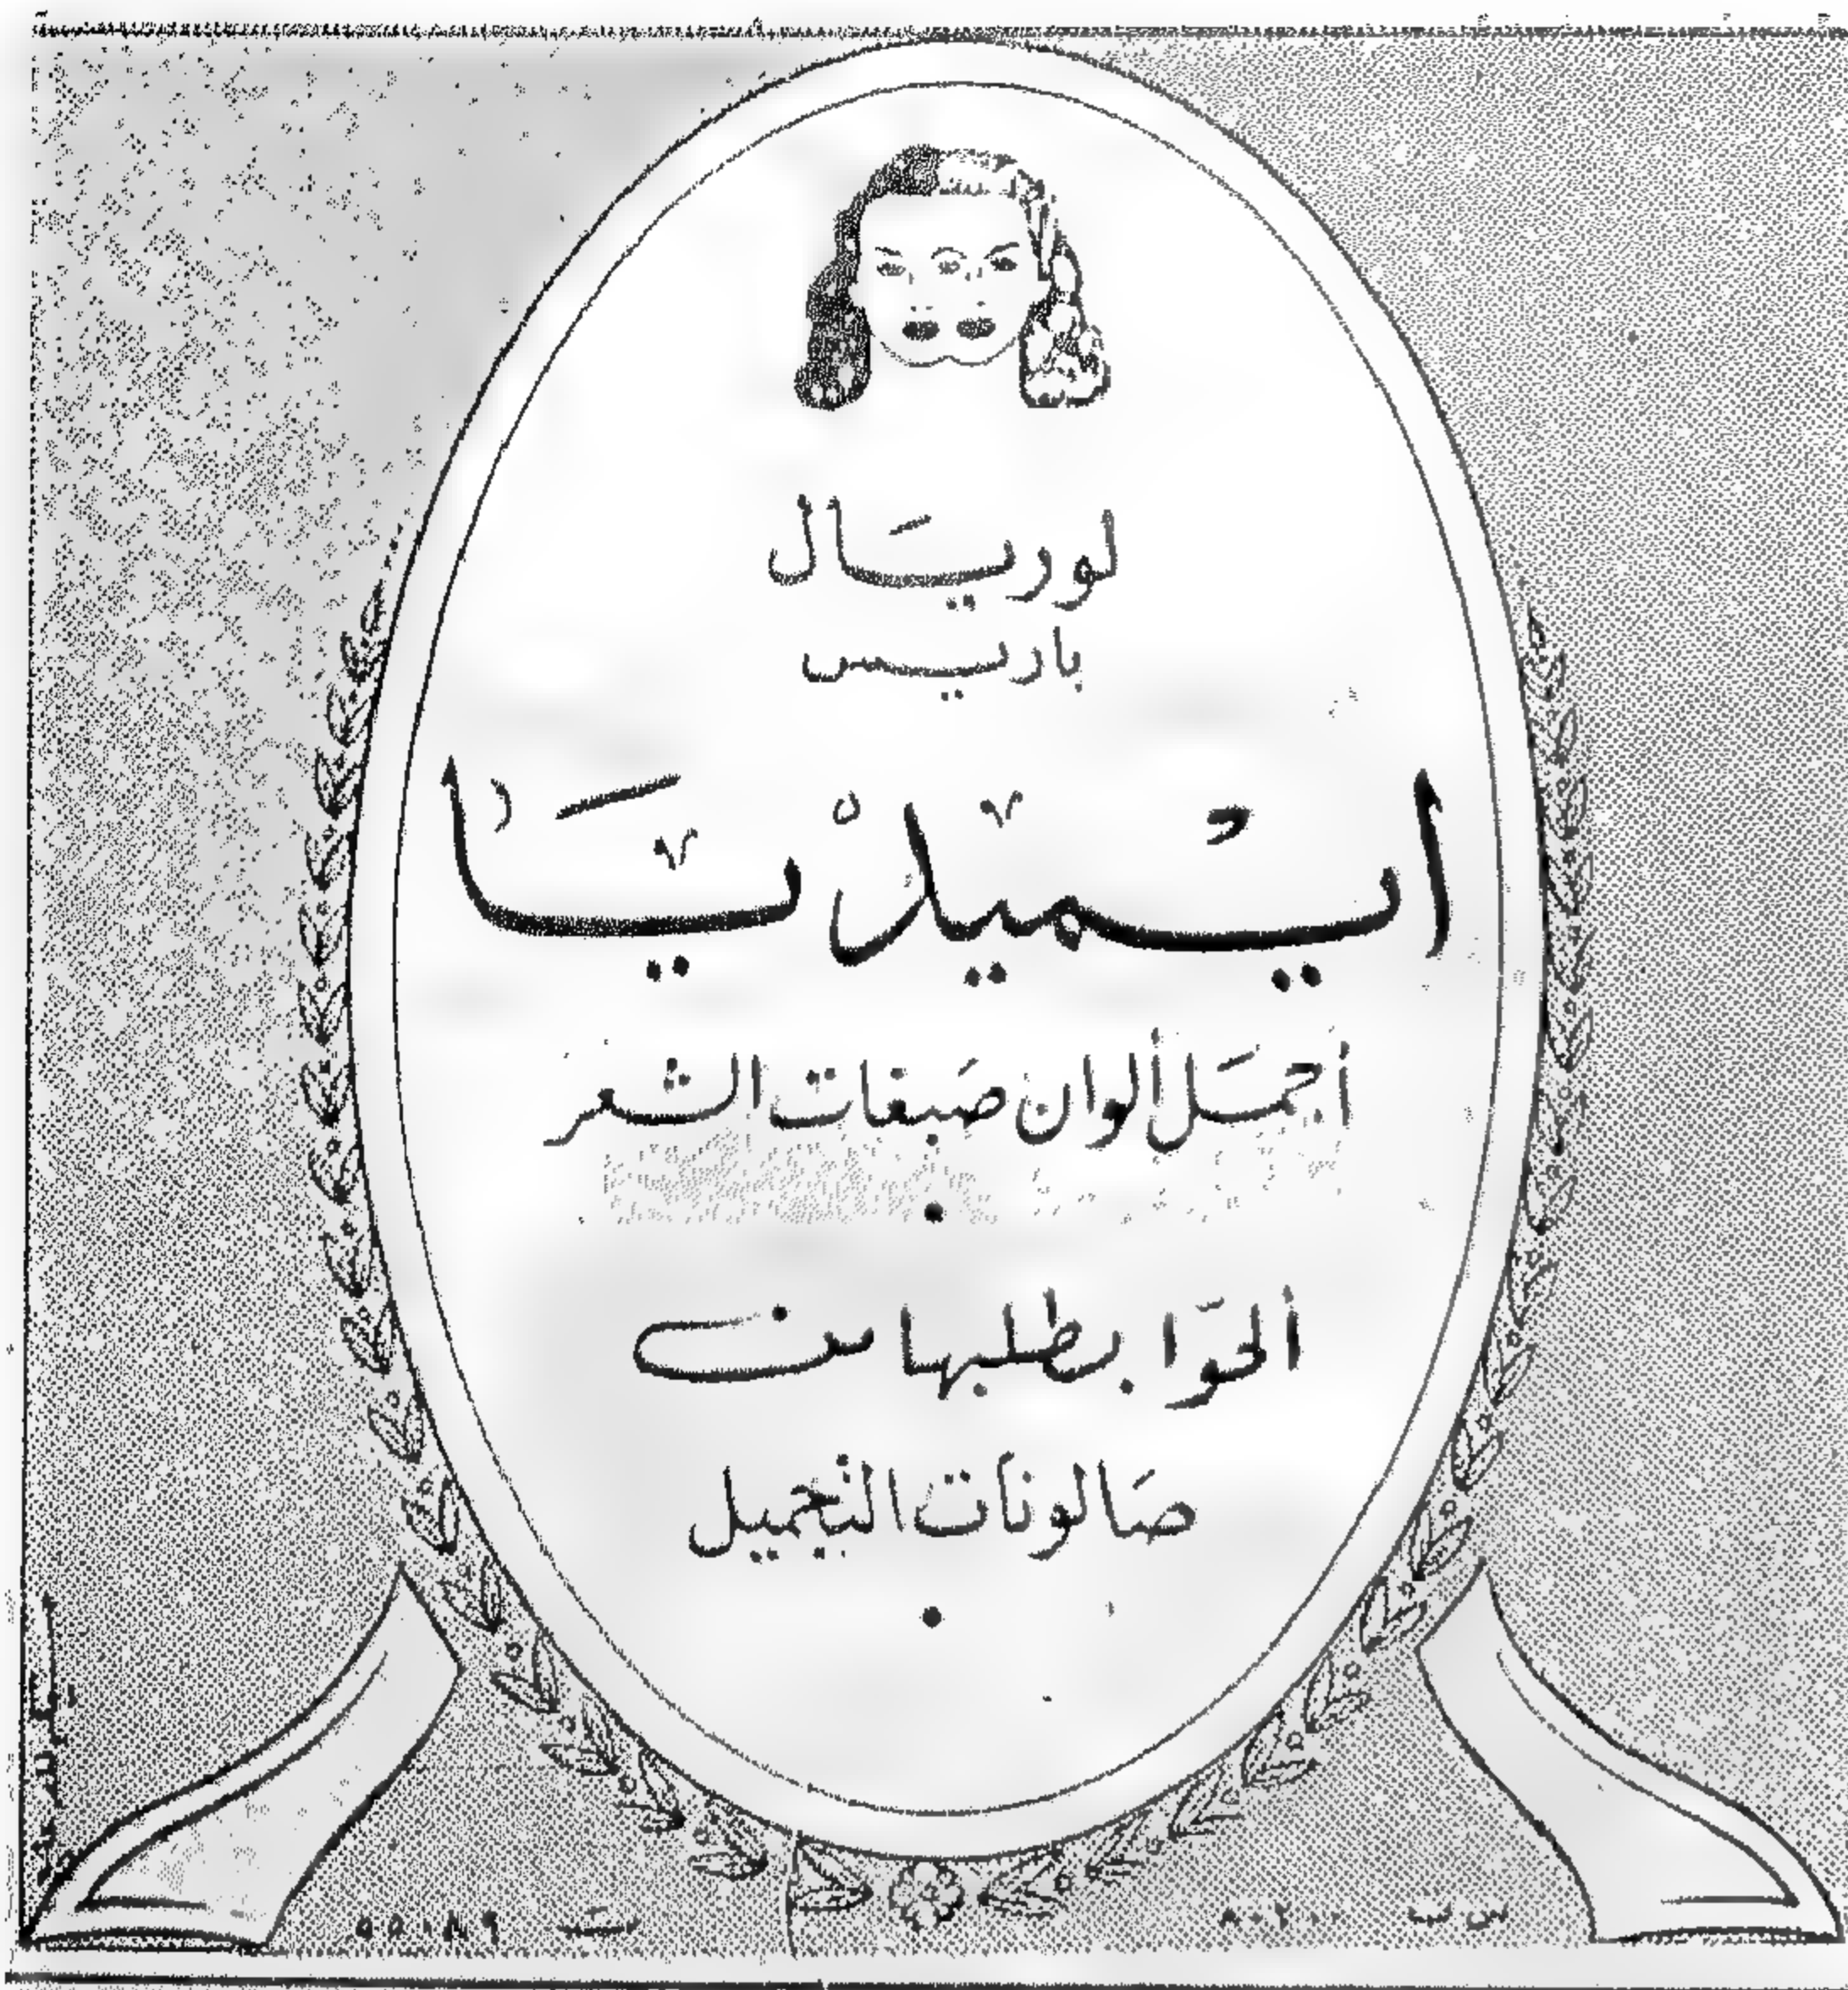 لوريَال
باريس
ايميدْيَا
أجمَل ألوان صَبغات الشعر
ألحّوا بطلبها من
صَالونات التجميل
س ت ٨٠٢٠٠ ت ٥٥٠٨٩